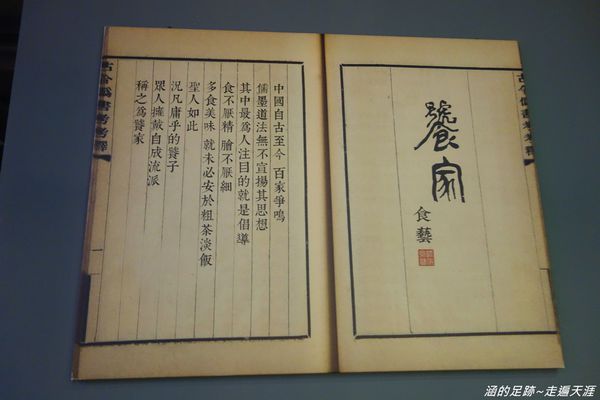 饕家
食藝
中國自古至今 百家爭鳴
儒墨道法無不宣揚其思想
其中最為人注目的就是倡導
食不厭精 膾不厭細
多食美味 就未必安於粗茶淡飯
聖人如此
況凡庸乎的饕子
眾人擁戴自成流派
稱之為饕家
古今偽書考考釋
古今偽書考考釋
涵的足跡~走遍天涯